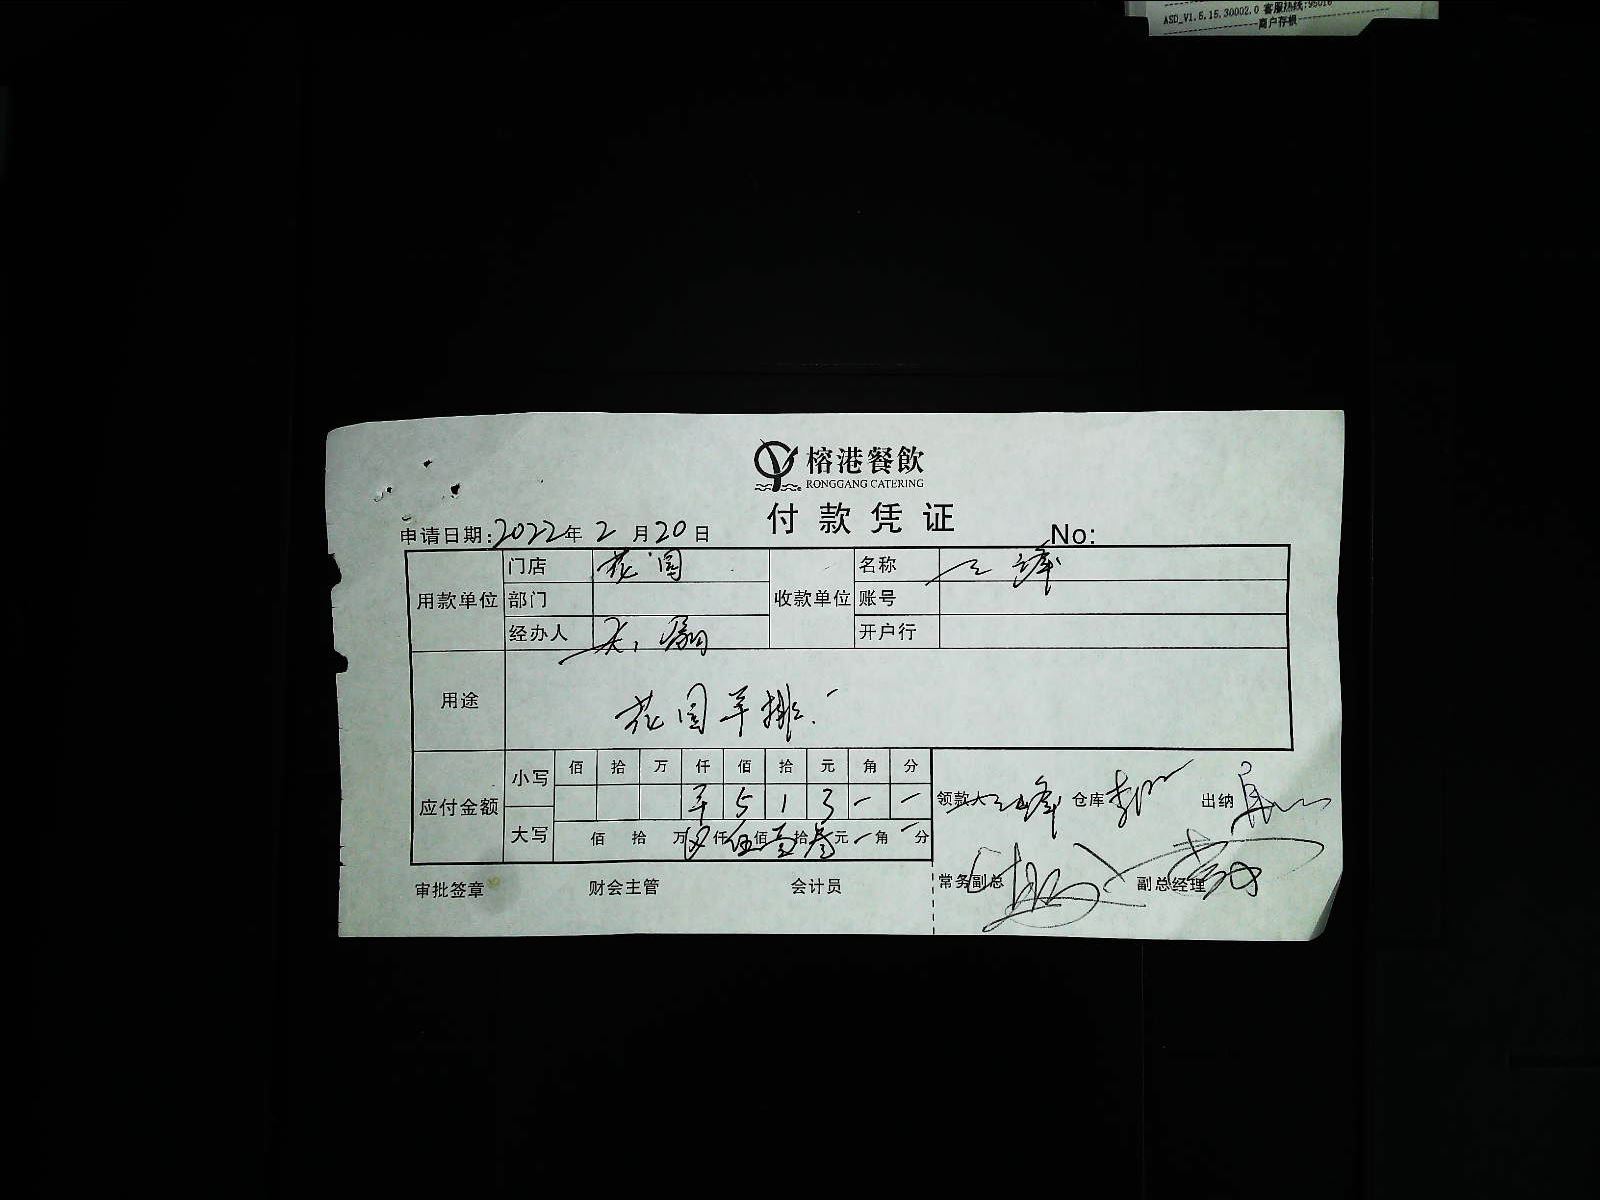 ASD_V1.5.15.30002.0 客服热线:95016
商户存根
榕港餐飲
RONGGANG CATERING
付款凭证
申请日期:2022年2月20日 No:
用款单位 门店 花园 收款单位 名称 峰
部门 账号
经办人 开户行
用途 花园羊排
应付金额 小写 佰 拾 万 仟 佰 拾 元 角 分
5 1 3 - -
大写 佰 拾 万 仟 伍佰壹拾叁元 - 角 - 分
领款人 峰 仓库 出纳
审批签章 财会主管 会计员 常务副总 副总经理